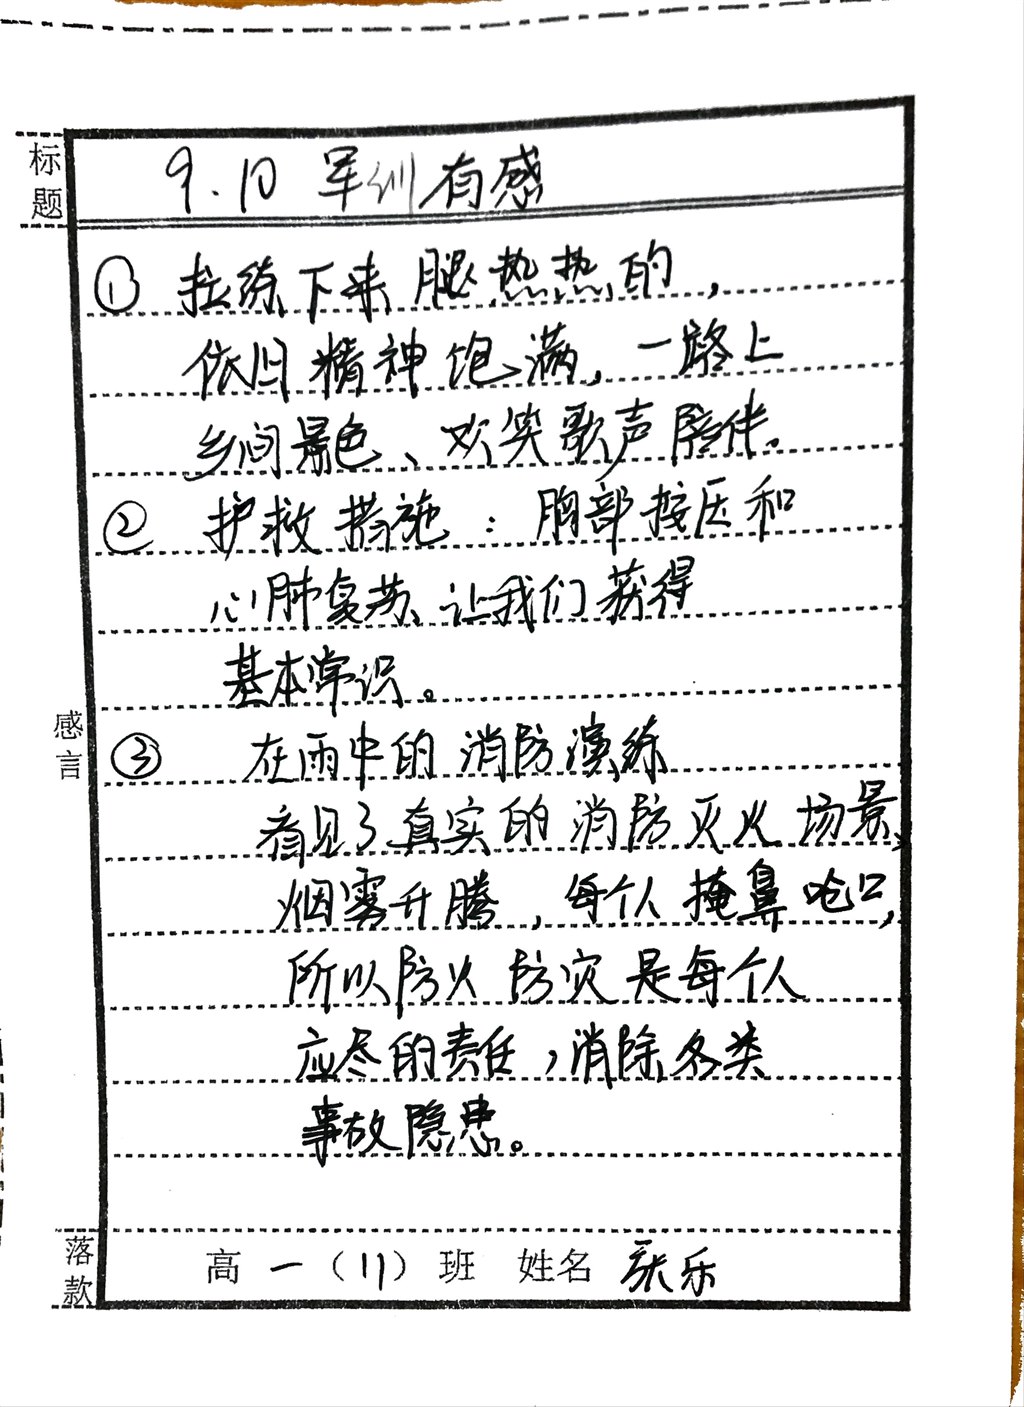 标题
9.10 军训有感
① 拉练下来腿热热的，
依旧精神饱满，一路上
乡间景色、欢笑歌声陪伴。
② 护救措施：胸部按压和
心肺复苏、让我们获得
基本常识。
感言
③ 在雨中的消防演练
看见了真实的消防灭火场景、
烟雾升腾，每个人掩鼻呛口，
所以防火防灾是每个人
应尽的责任，消除各类
事故隐患。
落款
高一（11）班 姓名 张乐